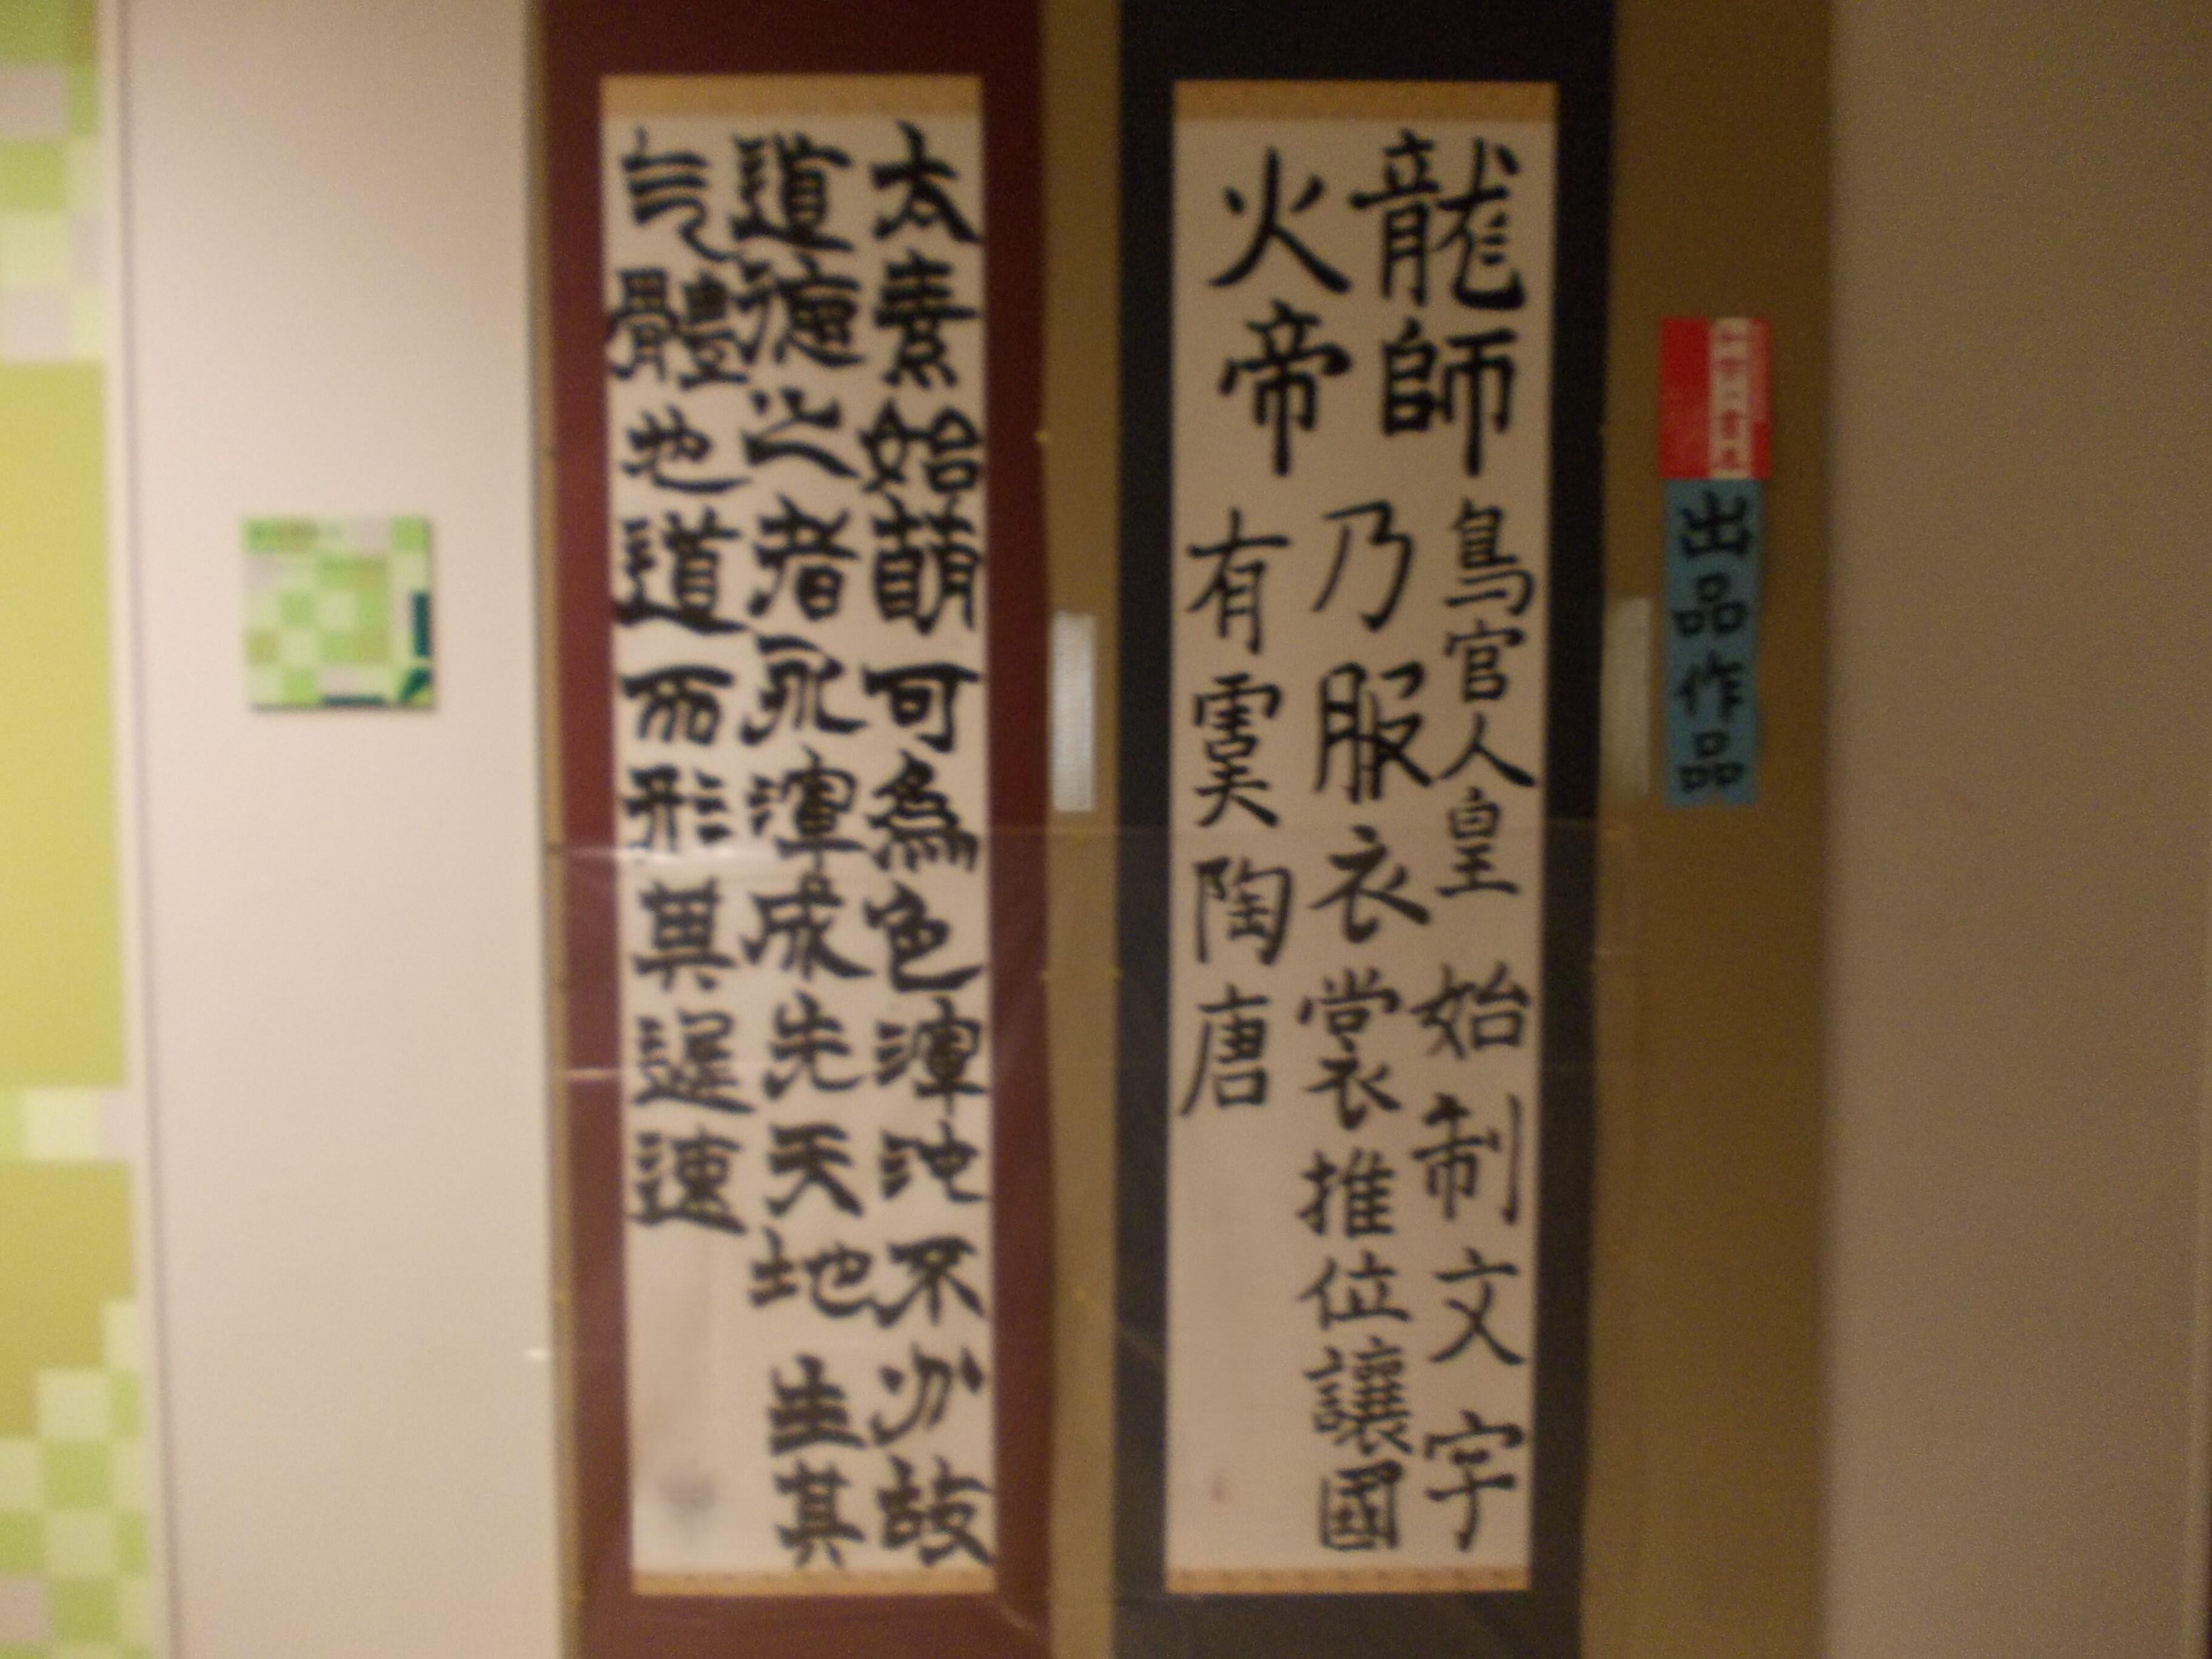 出品作品
龍師
火帝
鳥官人皇始制文字
乃服衣裳推位讓國
有虞陶唐
太素始萌可為色渾沌不分故
道德之者永渾成先天地生其
气體地道而形異遲速